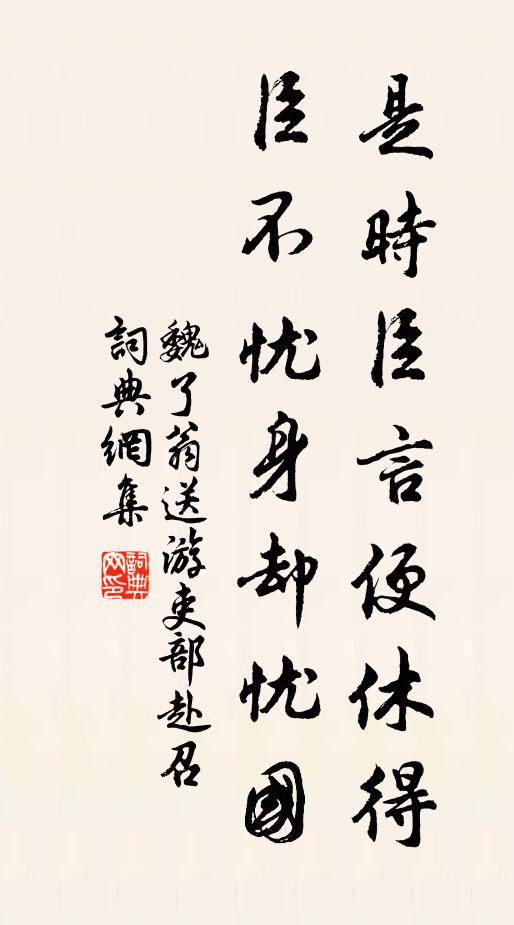 是時臣言便休得
臣不忧身却忧國
魏了翁送游吏部赴召
詞典網集
詞典网印